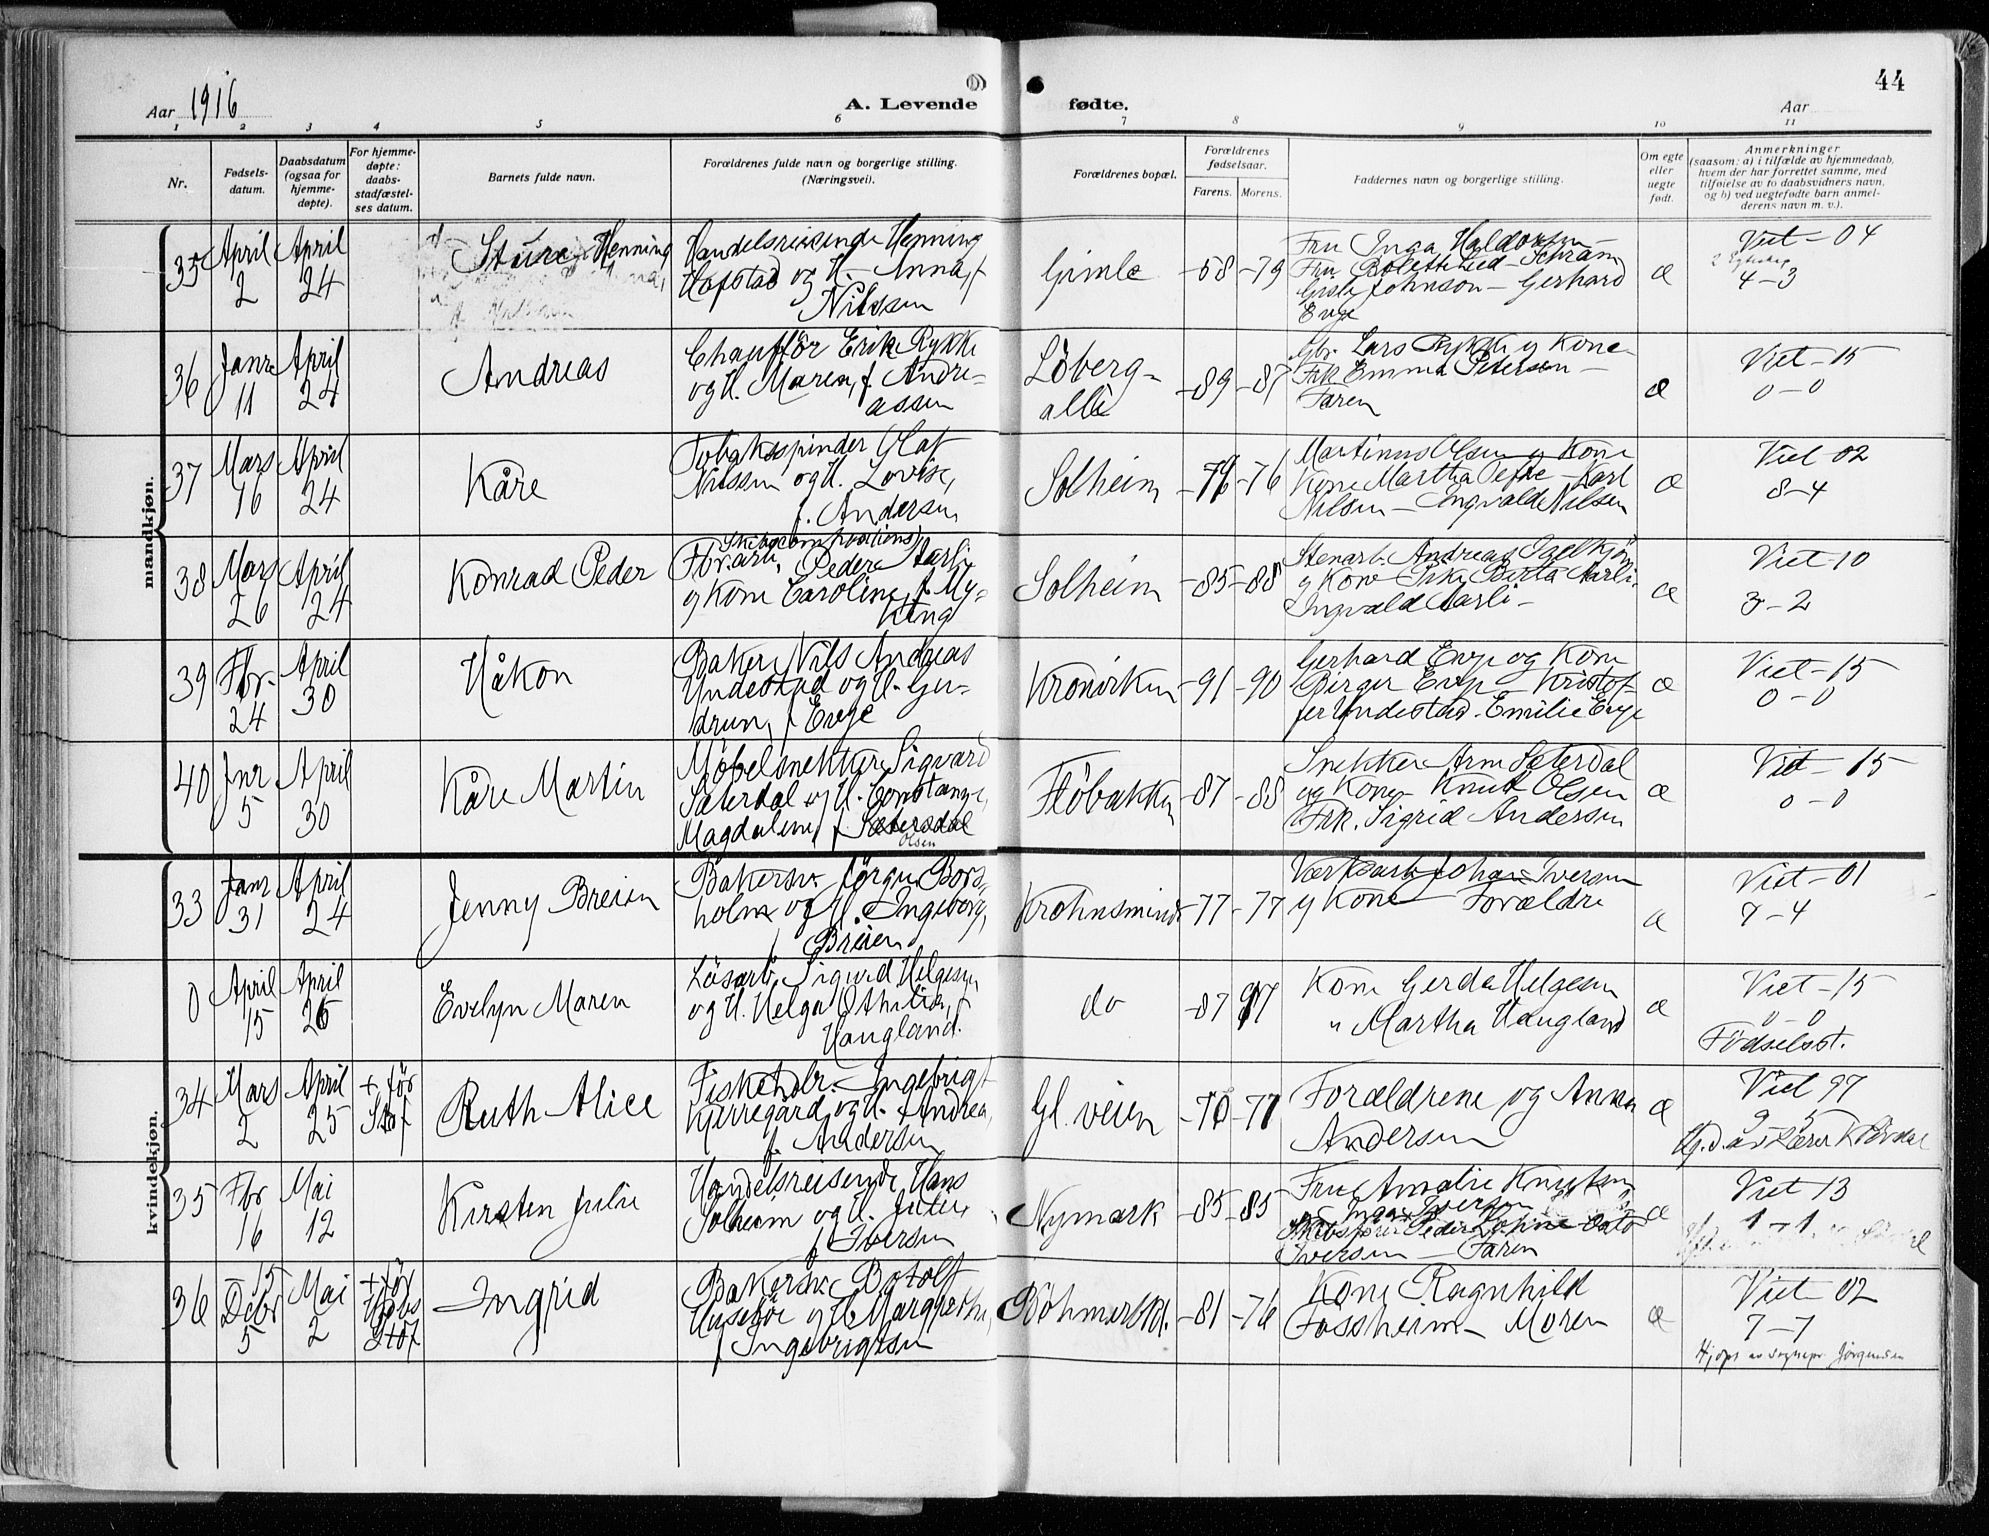 44
Aar 1916
A. Levende fødte.
Aar
1 2 3 4 5 6 7 8 9 10 11
Nr.
Fødsels-
datum.
Daabsdatum
(ogsaa for
hjemme-
døpte).
For hjemme-
døpte:
daabs-
stadfæstel-
ses datum.
Barnets fulde navn.
Forældrenes fulde navn og borgerlige stilling.
(Næringsvei).
Forældrenes bopæl.
Forældrenes
fødselsaar.
Farens. Morens.
Faddernes navn og borgerlige stilling.
Om egte
eller
uegte
født.
Anmerkninger
(saasom: a) i tilfælde av hjemmedaab,
hvem der har forrettet samme, med
tilføielse av to daabsvidners navn,
og b) ved uegtefødte barn anmel-
derens navn m. v.).
mandkjøn.
35
April
2
April
24
Sture Henning
Handelsreisende Henning
Hofstad og H. Anna, f
Nilssen
Gimle
-58
-79
Fru Inga Haldorsen -
Fru Schram
Johnson - Gerhard
Evje
æ
Viet - 04
4-3
36
Janr
11
April
24
Andreas
Chauffør Erik Rykke
og H. Maren, f. Andre-
assen
Löberg-
allé
-89
-87
Gbr. Lars Rykke og Kone
Frk Emma Petersen -
Faren
æ
Viet - 15
0-0
37
Mars
16
April
24
Kåre
Tobaksspinder Olaf
Nilssen og H. Lovise,
f. Andersen
Solheim
-76
-76
Martinus Olsen og Kone
Kone Martha - Karl
Nilsen - Nilsen
æ
Viet 02
8-4
38
Mars
26
April
24
Konrad Peder
Forarb. Peder Aarli
og Kone Caroline f. My-
king
Solheim
-85
-88
Stenarb. Andreas
og Kone Frk. Berta Aarli
Ingvald Aarli -
æ
Viet 10
3-2
39
Fbr.
24
April
30
Håkon
Baker Nils Andreas
Undestad og H. Ger-
drun, f Evje
Kronviken
-91
-90
Gerhard Evje og Kone
Birger Evje - Kristof-
fer Undestad - Emilie Evje
æ
Viet - 15
0-0
40
Jnr
5
April
30
Kåre Martin
Møbelsnekker Sigvard
Sæterdal og H. Constanze,
Magdalene, f. Sætersdal
Olsen
Flöbakken
-87
-88
Snekker Arne Sæterdal
og Kone - Knut Olsen
Frk. Sigrid Andersen
æ
Viet - 15
0-0
kvindekjøn.
33
Janr
31
April
24
Jenny Breien
Bakersv. Jörgen Bors-
holm og H. Ingeborg,
f Breien
Krohnsminde
-77
-77
Værkarb Johan Iversen
og Kone - Forældre
æ
Viet - 01
7-4
0
April
15
April
26
Evelyn Maren
Lösarb. Sigurd Helgesen
og H. Helga Othilie, f
Haugland.
do
-87
97
Kone Gerda Helgesen
" Martha Haugland
æ
Viet - 15
0-0
Fødselsst.
34
Mars
2
April
25
+ för
Stof
Ruth Alice
Fiskehdlr. Ingebrigt
Kjerregård og H. Andrea,
f. Andersen
Gl. veien
-70
-77
Forældrene og Anna
Andersen
æ
Viet 97
9 5
Hj.d. av Lærer
35
Fbr
16
Mai
12
Kirsten Julie
Handelsreisende Hans
Solheim og H. Julie,
f Iversen
Nymark
-85
-85
Fru Amalie Knutsen
Inga Iversen
Skibsfører Peder
Iversen - Faren
æ
Viet 13
1-1
36
15
Debr
5
Mai
2
+ för
Hobs
Stof
Ingrid
Bakersv. Botolf
Husebøe og H. Margrethe,
f Ingebrigtsen
BöhmersKl.
-81
-76
Kone Ragnhild
Fossheim - Moren
æ
Viet 02
7-7
Hj.døpt av sognepr. Jörgensen